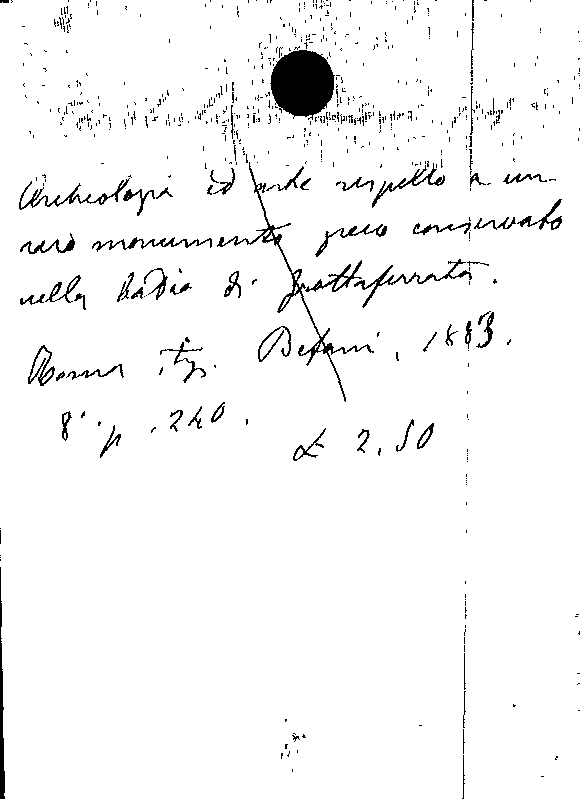 Archeologia ed arte rispetto a un
raro monumento greco conservato
nella badia di Grottaferrata.
Roma, tip. Befani, 1883.
8°. p. 240.
£ 2.50